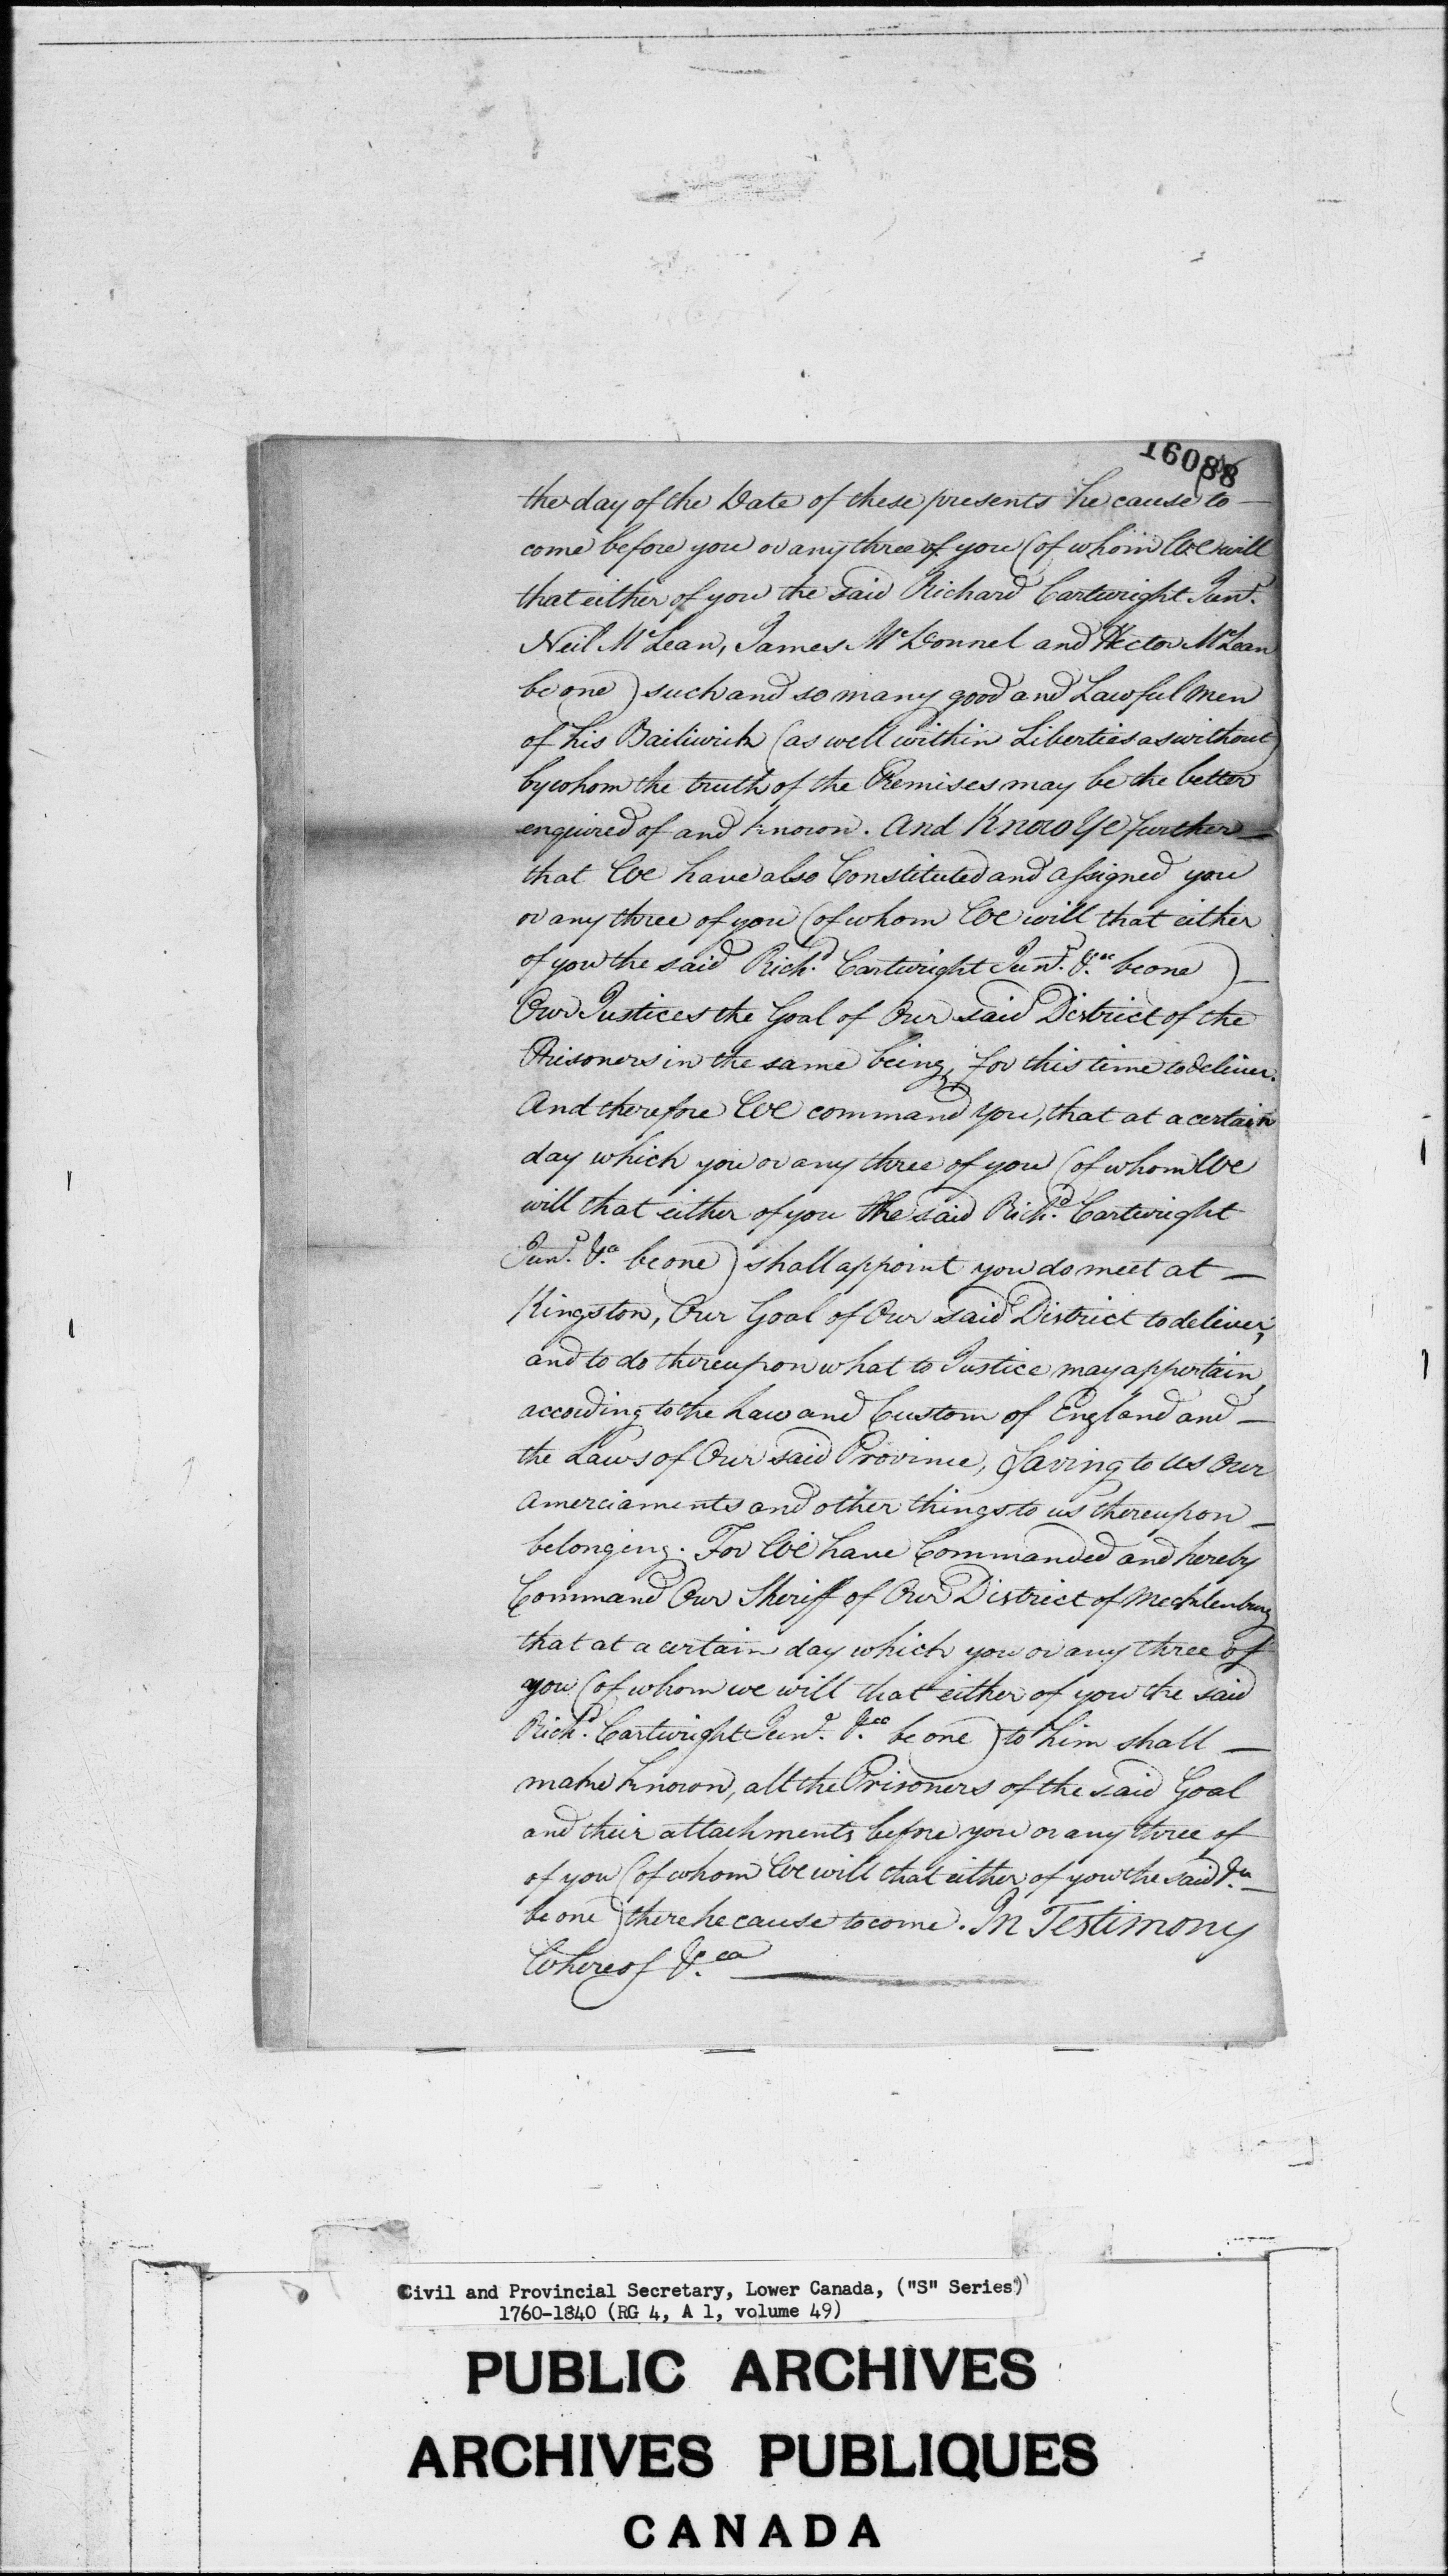 16088
the day of the Date of these presents he cause to —
come before you or any three of you (of whom We will
that either of you the said Richard Cartwright Junr.
Neil McLean, James McDonnel and Hector McLean
be one) such and so many good and Lawful Men
of his Bailiwick (as well within Liberties as without)
by whom the truth of the Premises may be the better
enquired of and known. And Know Ye further —
that We have also Constituted and assigned you
or any three of you (of whom We will that either
of you the said Richd. Cartwright Junr. &ca be one) —
Our Justices the Goal of Our said District of the
Prisoners in the same being, for this time to deliver.
And therefore We command you, that at a certain
day which you or any three of you (of whom We
will that either of you the said Richd. Cartwright
Junr. &ca be one) shall appoint you do meet at —
Kingston, Our Goal of Our said District to deliver,
and to do thereupon what to Justice may appertain,
according to the Law and Custom of England and —
the Laws of Our said Province, Saving to us Our
Amerciaments and other things to us thereupon —
belonging. For We have Commanded and hereby
Command Our Sheriff of Our District of Mecklenburg
that at a certain day which you or any three of
you (of whom we will that either of you the said
Richd. Cartwright Junr. &ca be one) to him shall —
make known, all the Prisoners of the said Goal
and their attachments before you or any three of
of you (of whom We will that either of you the said &ca —
be one) there he cause to come. In Testimony
Whereof &ca
Civil and Provincial Secretary, Lower Canada, ("S" Series)
1760-1840 (RG 4, A 1, volume 49)
PUBLIC ARCHIVES
ARCHIVES PUBLIQUES
CANADA